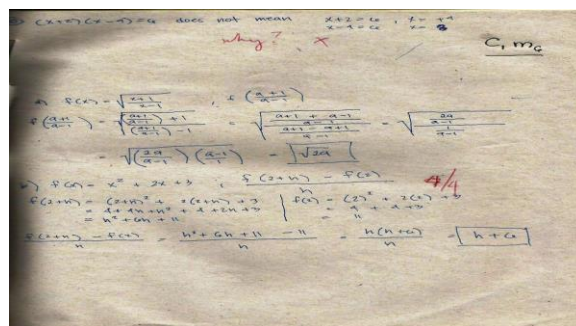 (x+2)(x-4)=6 does not mean x+2=6, x=+4
x-4=6 x=8
why? x
C, m
a) f(x) = √((x+1)/(x-1)) , f((a+1)/(a-1))
f((a+1)/(a-1)) = √(((a+1)/(a-1) + 1)/((a+1)/(a-1) - 1)) = √(((a+1 + a-1)/(a-1))/((a+1 - a+1)/(a-1))) = √((2a/(a-1))/(1/(a-1)))
= √((2a/(a-1))((a-1)/1)) = √2a
b) f(x) = x² + 2x + 3 , (f(2+h) - f(2))/h 4/4
f(2+h) = (2+h)² + 2(2+h) + 3 | f(2) = (2)² + 2(2) + 3
= 4+4h+h²+4+2h+3 = 4+4+3
= h²+6h+11 = 11
(f(2+h) - f(2))/h = (h²+6h+11 - 11)/h = h(h+6)/h = h+6